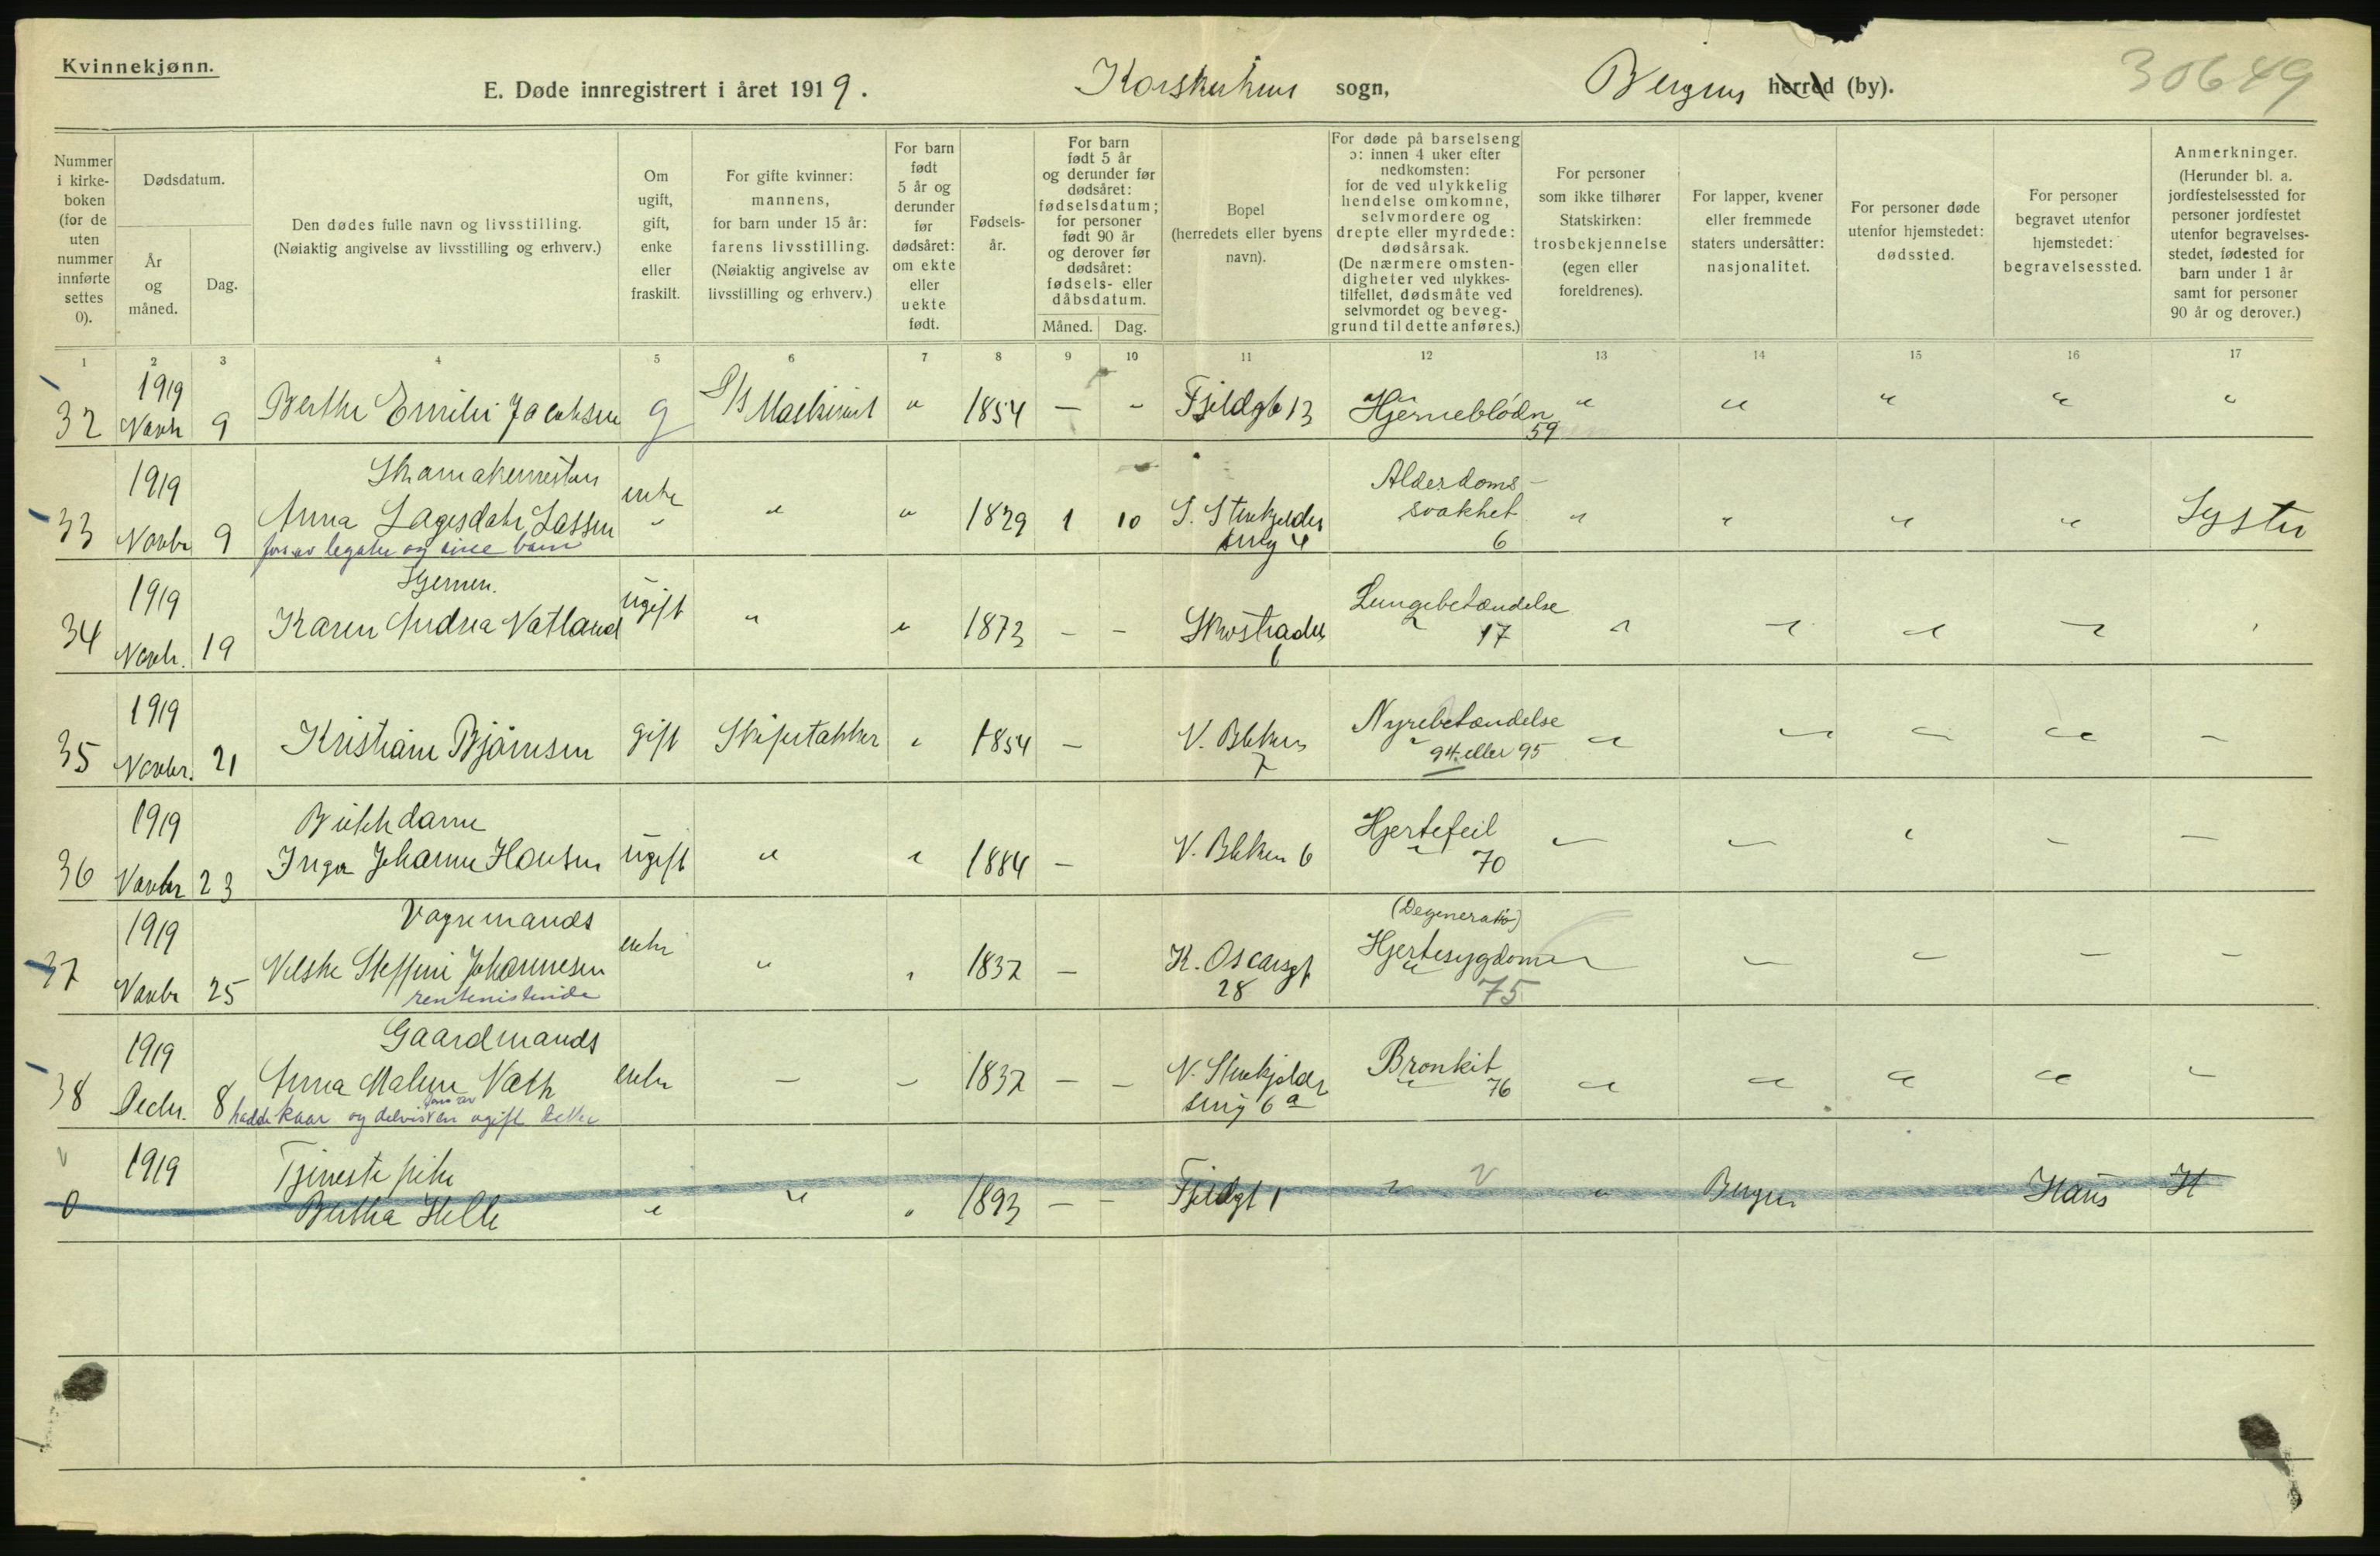 Kvinnekjønn.
E. Døde innregistrert i året 1919. Korskirkens sogn, Bergens herred (by). 30649
Nummer i kirkeboken (for de uten nummer innførte settes 0).
Dødsdatum.
År og måned.
Dag.
Den dødes fulle navn og livsstilling.
(Nøiaktig angivelse av livsstilling og erhverv.)
Om ugift, gift, enke eller fraskilt.
For gifte kvinner: mannens, for barn under 15 år: farens livsstilling. (Nøiaktig angivelse av livsstilling og erhverv.)
For barn født 5 år og derunder før dødsåret: om ekte eller uekte født.
Fødselsår.
For barn født 5 år og derunder før dødsåret: fødselsdatum; for personer født 90 år og derover før dødsåret: fødsels- eller dåbsdatum.
Måned. Dag.
Bopel (herredets eller byens navn).
For døde på barselseng ɔ: innen 4 uker efter nedkomsten: for de ved ulykkelig hendelse omkomne, selvmordere og drepte eller myrdede: dødsårsak. (De nærmere omstendigheter ved ulykkestilfellet, dødsmåte ved selvmordet og beveggrund til dette anføres.)
For personer som ikke tilhører Statskirken: trosbekjennelse (egen eller foreldrenes).
For lapper, kvener eller fremmede staters undersåtter: nasjonalitet.
For personer døde utenfor hjemstedet: dødssted.
For personer begravet utenfor hjemstedet: begravelsessted.
Anmerkninger. (Herunder bl. a. jordfestelsessted for personer jordfestet utenfor begravelsesstedet, fødested for barn under 1 år samt for personer 90 år og derover.)
1 2 3 4 5 6 7 8 9 10 11 12 13 14 15 16 17
1919
32 Novbr 9 Berthe Emilie Jacobsen g S/S Maskinist " 1854 — " Fjeldgt 13 Hjerneblödn " " " " "
59
1919 Skomakermester enke Alderdoms-
33 Novbr 9 Anna Lagesdatr Lassen " " " 1829 1 10 S. Stenkjelder svakhet " " " " Lyster
fors av legater og sine barn smug 4 6
1919 Hjemm. ugift Lungebetændelse
34 Novbr. 19 Karen Andrea Vatland " " 1873 - - Skostradet 17 " " " " "
1
1919 Nyrebetændelse
35 Novbr. 21 Kristiane Björnsen gift Skipstakker " 1854 — V. Blekev 94 eller 95 " " " " —
7
1919 Butikkdame Hjertefeil
36 Novbr 23 Inga Johanne Hansen ugift " " 1884 — V. Blekev 6 70 " " " " "
1919 Vognmands enke (Degeneratio)
37 Novbr 25 Steffine Johannesen " " 1837 — K. Oscarsgt Hjertesygdom " " " " "
rentenistinde 28 75
1919 Gaardmands Bronkit
38 Decbr. 8 Anna Malene Vath enke — — 1837 — — N. Stenkjelder 76 " " " " "
hadde kaar og delvis fors av en ugift datter smug 6 a
1919 Tjenestepike
0 Bertha Helle " " " 1893 — — Fjeldgt 1 " " Bergen Haus H